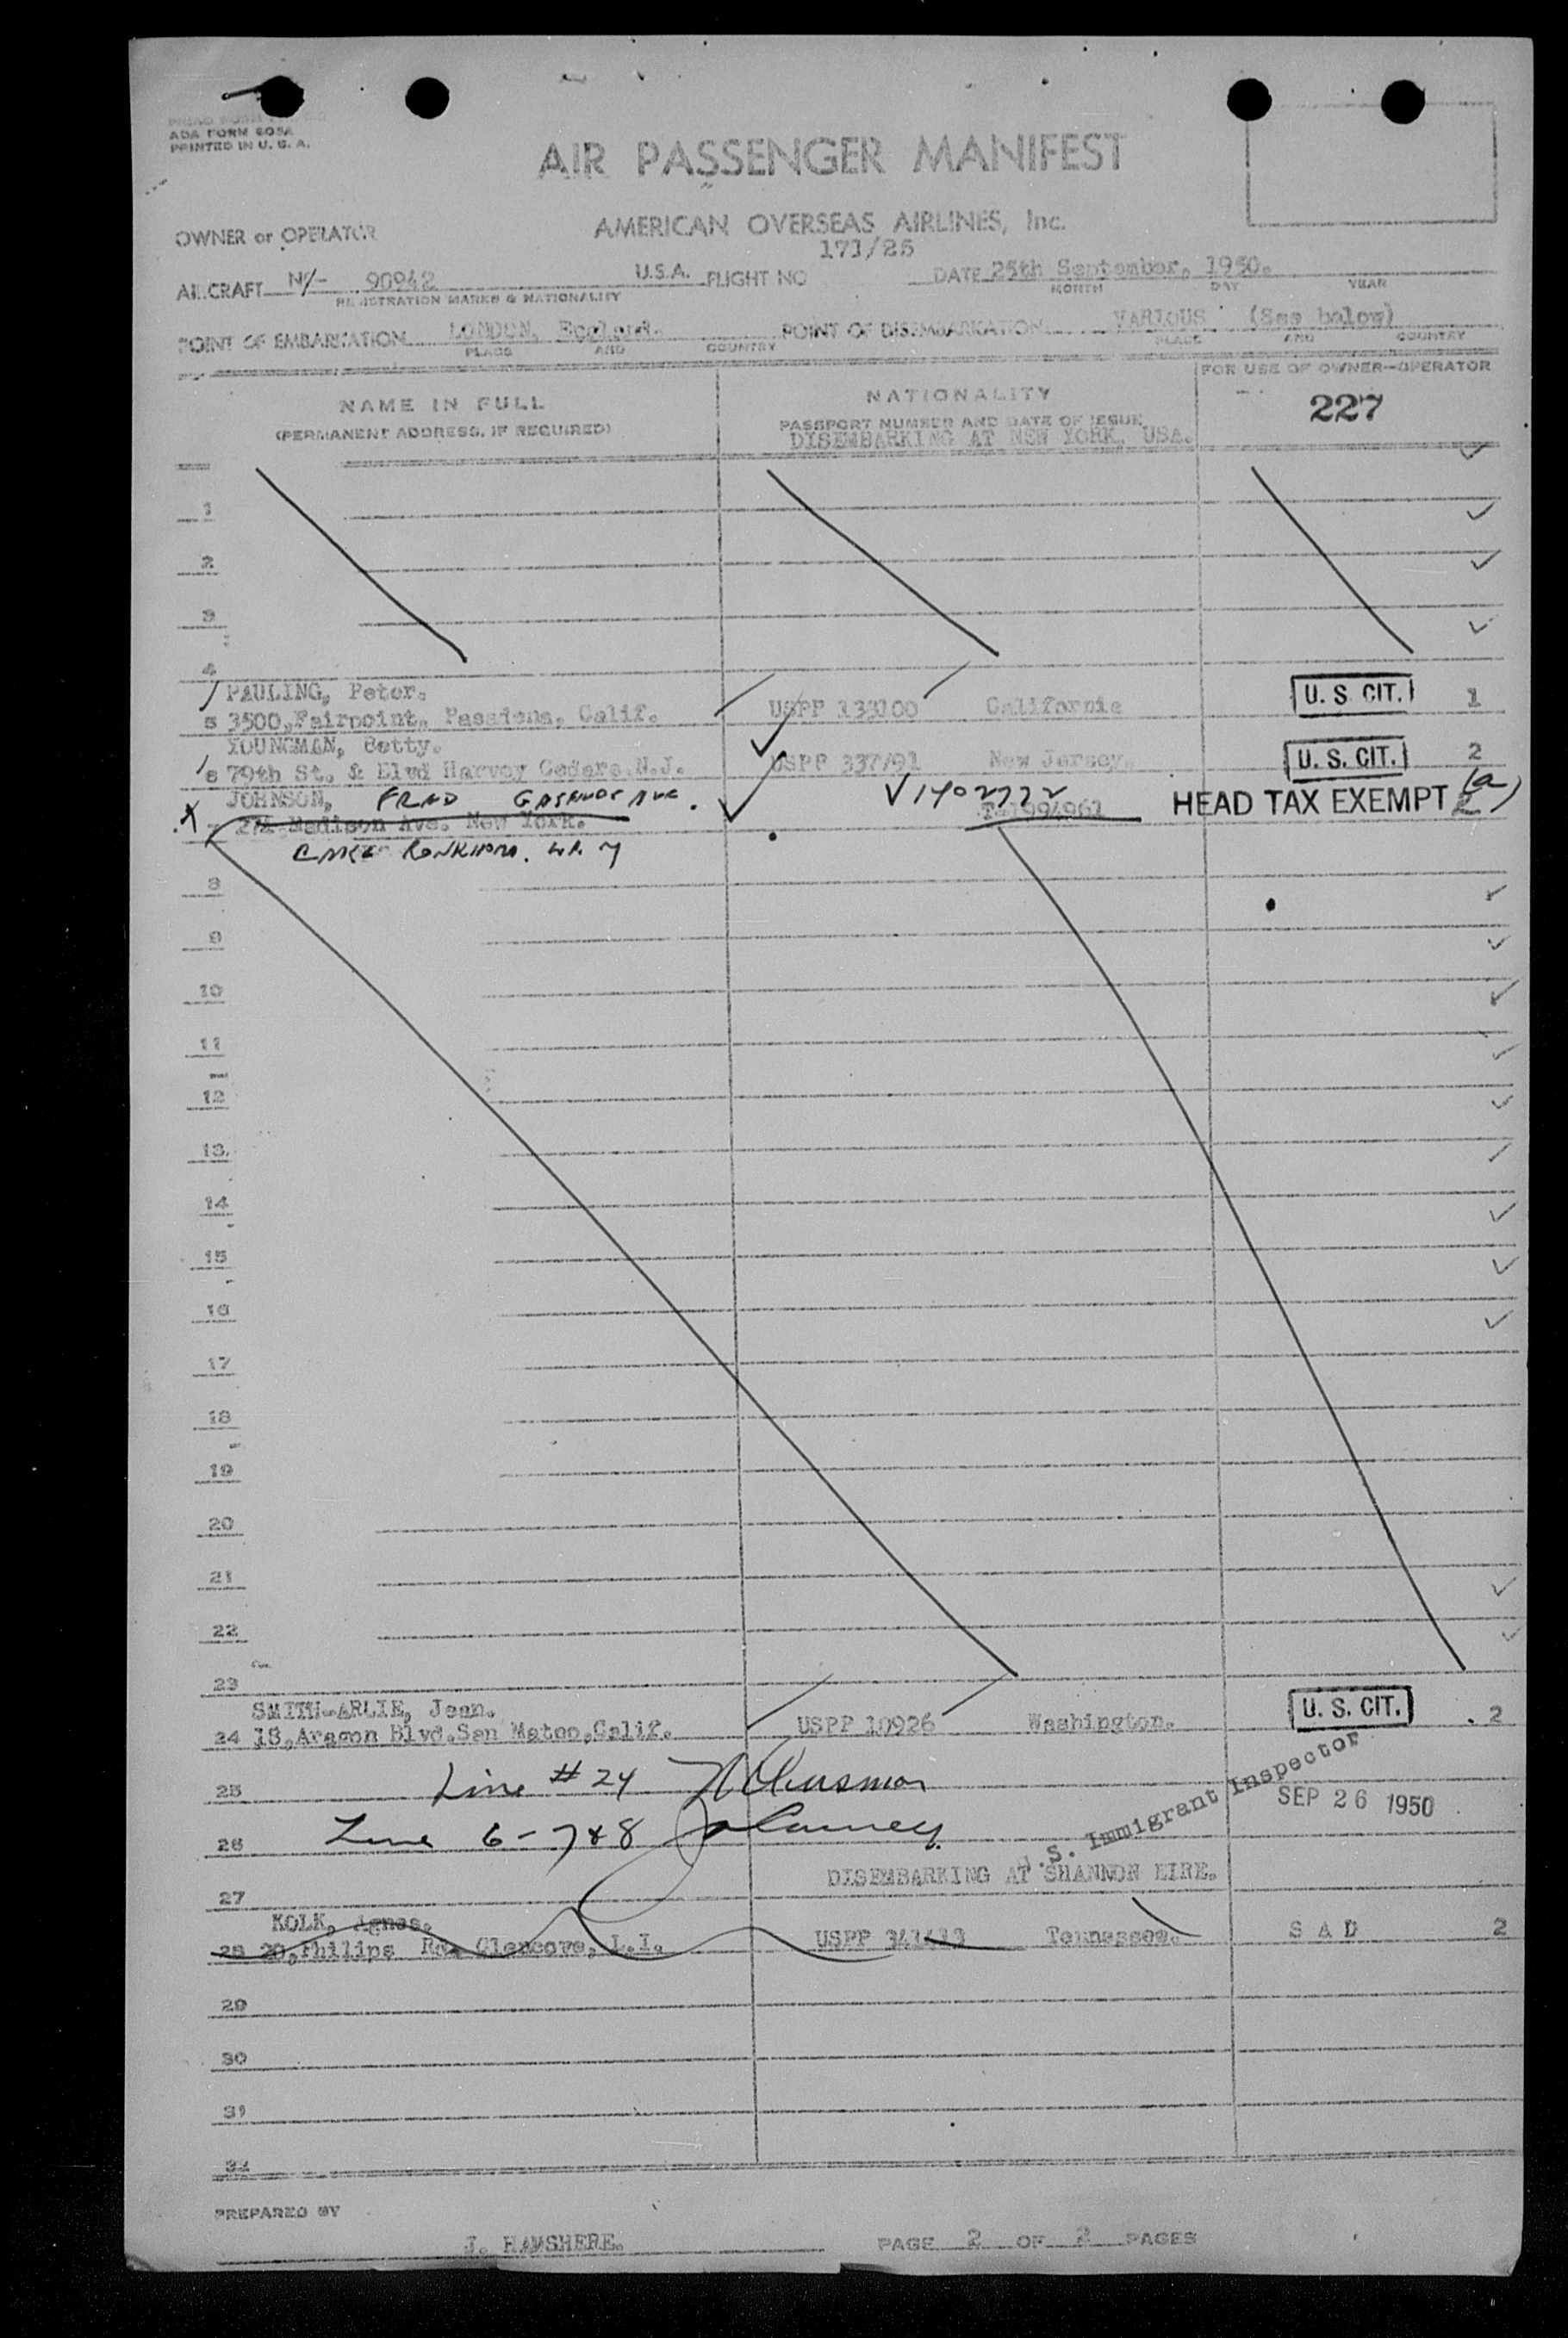 ADA FORM 605A
PRINTED IN U. S. A.
AIR PASSENGER MANIFEST
OWNER or OPERATOR AMERICAN OVERSEAS AIRLINES, Inc.
171/25
AIRCRAFT N/- 90942 U.S.A. FLIGHT NO DATE 25th September, 1950.
REGISTRATION MARKS & NATIONALITY MONTH DAY YEAR
POINT OF EMBARKATION LONDON, England. POINT OF DISEMBARKATION VARIOUS (See below)
PLACE AND COUNTRY PLACE AND COUNTRY
FOR USE OF OWNER—OPERATOR
NAME IN FULL NATIONALITY 227
(PERMANENT ADDRESS, IF REQUIRED) PASSPORT NUMBER AND DATE OF ISSUE
DISEMBARKING AT NEW YORK, USA.
1
2
3
4
PAULING, Peter. U. S. CIT. 1
5 3500, Fairpoint, Pasadena, Calif. USPP 133100 California
YOUNGMAN, Betty. U. S. CIT. 2
6 79th St. & Blvd Harvey Cedars, N.J. USPP 337791 New Jersey.
JOHNSON, FRED V1402772 HEAD TAX EXEMPT (a)
Madison Ave. New York.
8
9
10
11
12
13
14
15
16
17
18
19
20
21
22
23
SMITH-ARLIE, Jean. U. S. CIT. 2
24 18, Aragon Blvd. San Mateo, Calif. USPP 10926 Washington.
25 Line # 24
U. S. Immigrant Inspector
SEP 26 1950
26 Line 6-7 & 8
DISEMBARKING AT SHANNON EIRE.
27
KOLK, Agnes.
28 20, Philips Rd. Glencove, L.I. USPP 341413 Tennessee. S A D 2
29
30
31
32
PREPARED BY
J. HAMSHERE. PAGE 2 OF 2 PAGES